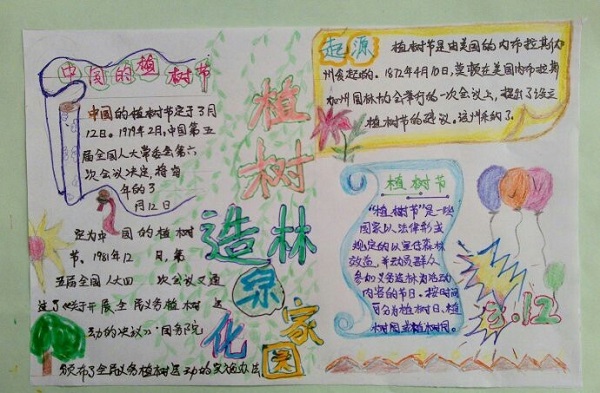 中国的植树节
中国的植树节定于3月
12日。1979年2月,中国第五
届全国人大常委会第六
次会议决定,将每
年的3
月12日
定为中国的植树
节。1981年12月,第
五届全国人大四次会议又通
过了《关于开展全民义务植树运
动的决议》。国务院
颁布了全民义务植树运动的实施办法
植树
造林
绿化
家园
起源
植树节是由美国的内布拉斯
州发起的。1872年4月10日,莫顿在美国内布拉斯
加州园林协会举行的一次会议上,提出了设立
植树节的建议。该州采纳了。
植树节
“植树节”是一些
国家以法律形式
规定的以宣传森林
效益,并动员群人
参加义务造林为活动
内容的节日。按时间
可分为植树日、植
树周或植树月。
3.12